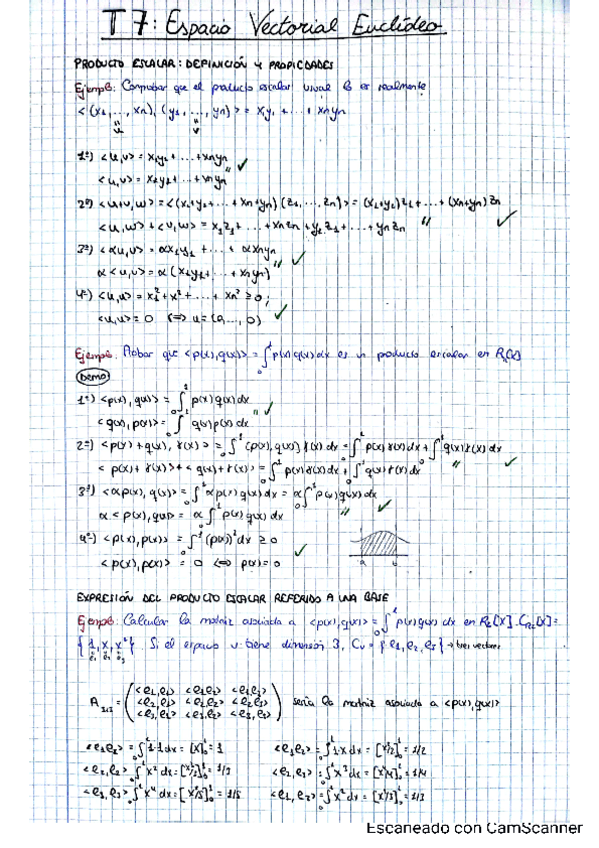 T7: Espacio Vectorial Euclídeo
PRODUCTO ESCALAR: DEFINICIÓN Y PROPIEDADES
Ejemplo: Comprobar que el producto escalar usual lo es realmente
<(x₁, ..., xn), (y₁, ..., yn)> = x₁y₁ + ... + xnyn
1º) <u,v> = x₁y₁ + ... + xnyn
<u,v> = x₁y₁ + ... + xnyn
2º) <u+v,w> = <(x₁+y₁+ ... + xn+yn)(z₁, ..., zn)> = (x₁+y₁)z₁ + ... + (xn+yn)zn
<u,w> + <v,w> = x₁z₁ + ... + xnzn + y₁z₁ + ... + ynzn
3º) <αu,v> = αx₁y₁ + ... + αxnyn
α<u,v> = α(x₁y₁ + ... + xnyn)
4º) <u,u> = x₁² + x² + ... + xn² ≥ 0;
<u,u> = 0 ⇔ u = (0, ..., 0)
Ejemplo: Probar que <p(x),q(x)> = ∫₀¹ p(x)q(x)dx es un producto escalar en R₂(x)
Demo
1º) <p(x),q(x)> = ∫₀¹ p(x)q(x)dx
<q(x),p(x)> = ∫₀¹ q(x)p(x)dx
2º) <p(x)+q(x), r(x)> = ∫₀¹ (p(x),q(x)) r(x) dx = ∫₀¹ p(x)r(x)dx + ∫₀¹ q(x)r(x)dx
<p(x)+r(x)> + <q(x)+r(x)> = ∫₀¹ p(x)r(x)dx + ∫₀¹ q(x)r(x)dx
3º) <αp(x), q(x)> = ∫₀¹ αp(x)q(x)dx = α∫₀¹ p(x)q(x)dx
α<p(x),q(x)> = α∫₀¹ p(x)q(x)dx
4º) <p(x),p(x)> = ∫₀¹ (p(x))²dx ≥ 0
<p(x),p(x)> = 0 ⇔ p(x)=0
a b
EXPRESIÓN DEL PRODUCTO ESCALAR REFERIDO A UNA BASE
Ejemplo: Calcular la matriz asociada a <p(x),q(x)> = ∫₀¹ p(x)q(x) dx en R₂[X]. C_R₂[X] =
{1, x, x²}. Si el espacio v. tiene dimensión 3, Cv = {e₁, e₂, e₃} → tres vectores
e₁ e₂ e₃
<e₁,e₁> <e₁e₂> <e₁e₃>
A₃ₓ₃ = <e₂,e₁> <e₂e₂> <e₂e₃> sería la matriz asociada a <p(x),q(x)>
<e₃,e₁> <e₃e₂> <e₃,e₃>
<e₁e₁> = ∫₀¹ 1·1 dx = [x]₀¹ = 1 <e₁e₂> = ∫₀¹ 1·x dx = [x²/2]₀¹ = 1/2
<e₂,e₂> = ∫₀¹ x² dx = [x³/3]₀¹ = 1/3 <e₂,e₃> = ∫₀¹ x³ dx = [x⁴/4]₀¹ = 1/4
<e₃,e₃> = ∫₀¹ x⁴ dx = [x⁵/5]₀¹ = 1/5 <e₁,e₃> = ∫₀¹ x² dx = [x³/3]₀¹ = 1/3
Escaneado con CamScanner